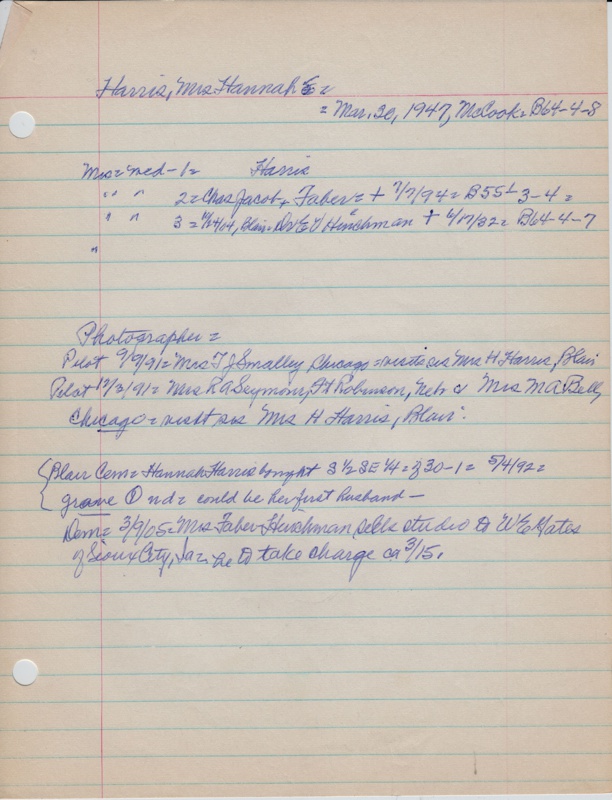 Harris, Mrs Hannah E =
= Mar. 30, 1947, McCook = B64-4-8
Mrs = med - 1 = Harris
" " 2 = Chas Jacob Faber = + 7/7/94 = B55 3-4 =
" " 3 = /04, Blair = Dr E V Hinchman + 4/17/32 = B64-4-7
"
Photographer =
Pilot 9/9/91 = Mrs T J Smalley, Chicago = visits sis Mrs H Harris, Blair
Pilot 12/3/91 = Mrs R A Seymour, Ft Robinson, Neb & Mrs M A Bell,
Chicago = visit sis Mrs H Harris, Blair.
Blair Cem = Hannah Harris bought S 1/2 SE 1/4 = 30-1 = 5/4/92 =
grave 1 nd = could be her first husband —
Dem = 3/9/05 = Mrs Faber Hinchman sells studio to W E Yates
of Sioux City, Ia = he to take charge ca 3/15.